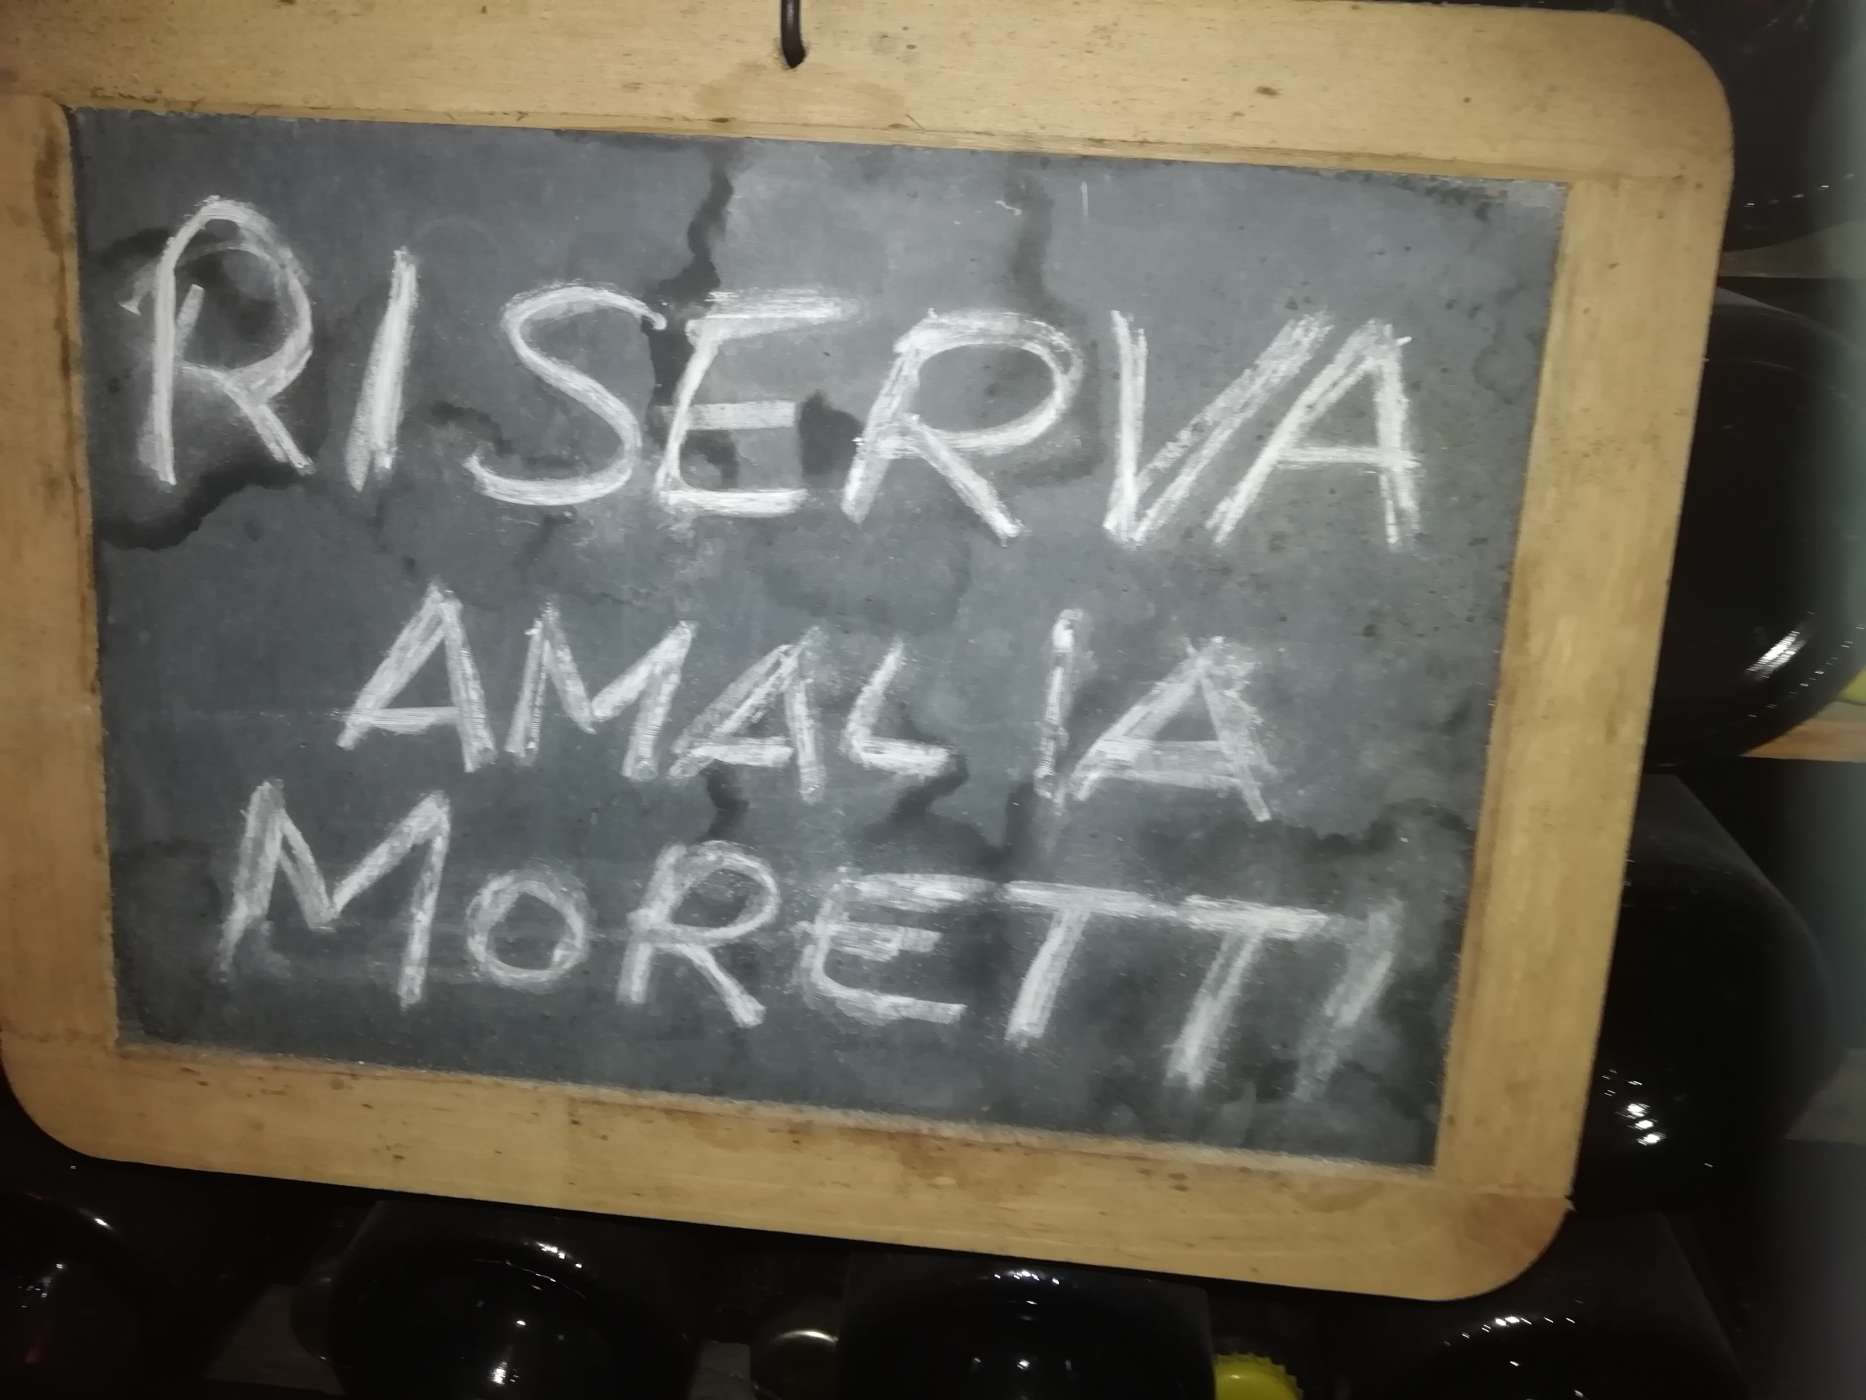 RISERVA
AMALIA
MORETTI